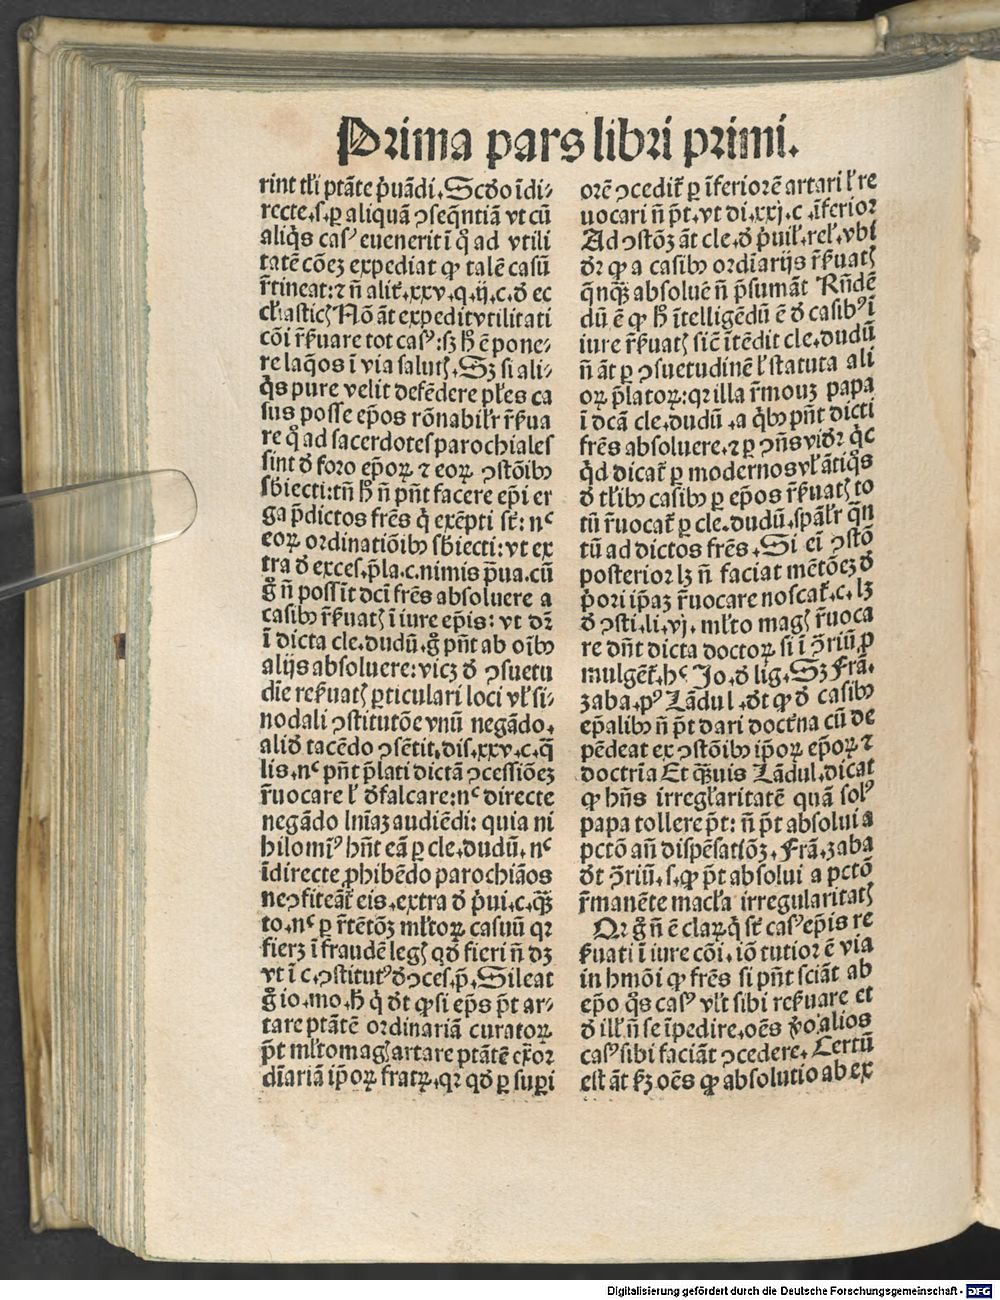 Prima pars libri primi.
rint tłi ptãte ṗuãdi. Scđo ĩdi⸗
recte. s. ꝑ aliquã ↄseq̃ntiã vt cũ
aliq̇s casꝰ euenerit ĩ qͦ ad vtili
tatẽ cõeꝫ expediat ꝙ talẽ casũ
r̃tineat: ⁊ ñ alit̃. xxv. q. ij. c. đ ec
Nõ ãt expedit vtilitati
cõi r̃ẜuare tot casꝰ: sꝫ ẽ pone⸗
re laq̃os ĩ via salutꝭ. Sꝫ si ali⸗
q̇s pure velit defẽdere pl̃es ca
sus posse ep̃os rõnabilr̃ r̃ẜua
re qͦ ad sacerdotes parochiales
sint đ foro ep̃oꝝ ⁊ eoꝝ ↄstõibꝰ
sb̃iecti: tñ ñ pñt facere ep̃i er
ga p̃dictos fr̃es q̇ exẽpti st̃: nͨ
eoꝝ ordinatiõibꝰ sb̃iecti: vt ex
tra đ exces. p̃la. c. nimis p̃ua. cũ
gͦ ñ possĩt dc̃i fr̃es absoluere a
casibꝰ r̃ẜuatꝭ ĩ iure ep̃is: vt dr̃
ĩ dicta cle. dudũ. gͦ pñt ab oĩbꝰ
alijs absoluere: vicꝫ đ ↄsuetu
dĩe reẜuatꝭ ꝑticulari loci vł si⸗
nodali ↄstitutõe vnũ negãdo.
aliđ tacẽdo ↄsẽtit. dis. xxv. c. q̃
lis. nͨ pñt p̃lati dictã ↄcessiõeꝫ
r̃uocare ł đfalcare: nͨ directe
negãdo lñiaꝫ audiẽdi: quia ni
hilomĩꝰ hñt eã ꝑ cle. dudũ. nͨ
ĩdirecte ꝓhibẽdo parochiãos
ne ↄfiteãt̃ eis. extra đ ṗui. c. q̃ꝫ
to. nͨ ꝑ r̃tẽtõꝫ ml̃toꝝ casuũ qꝛ
fierꝫ ĩ fraudẽ legꝭ qđ fieri ñ dꝫ
vt ĩ c. ↄstitutꝰ đ ↄces. p̃. Sileat
gͦ io. mo. q̇ đt ꝙ si ep̃s p̃t ar⸗
tare ptãtẽ ordinariã curatoꝝ
p̃t ml̃tomagꝭ artare ptãtẽ ex̃or
dĩariã ip̃oꝝ fratꝝ. qꝛ qđ ꝑ suꝑi
orẽ ↄcedit̃ ꝑ ĩferiorẽ artari ł re
uocari ñ p̃t. vt di. xxj. c. ĩferior
Ad ↄstõꝫ ãt cle. đ ṗuil̃. rel̃. vbi
dr̃ ꝙ a casibꝰ ordĩarijs r̃ẜuatꝭ
q̃nq̃ absoluẽ ñ p̃sumãt Rñdẽ
dũ ẽ ꝙ ĩtelligẽdũ ẽ đ casibꝰ ĩ
iure r̃ẜuatꝭ sic̃ ĩtẽdit cle. dudũ
ñ ãt ꝑ ↄsuetudinẽ ł statuta ali
oꝝ p̃latoꝝ: qꝛ illa r̃mouꝫ papa
ĩ dc̃ã cle. dudũ. a q̇bꝰ pñt dicti
fr̃es absoluere. ⁊ ꝑ ↄñs vidr̃ q̇c
q̇d dicat̃ ꝑ modernos vł ãtiq̇s
đ tl̃ibꝰ casibꝰ ꝑ ep̃os r̃ẜuatꝭ to
tũ r̃uocat̃ ꝑ cle. dudũ. sp̃al̃r q̃n
tũ ad dictos fr̃es. Si ei̾ ↄstõ
posterior lꝫ ñ faciat mẽtõeꝫ đ
ṗori ip̃aꝫ r̃uocare noscat̃. c. lꝫ
đ ↄsti. li. vj. ml̃to magꝭ r̃uoca
re dñt dicta doctoꝝ si ĩ ↄ̃riũ ꝓ
mulgẽt̃. hͨ Jo. đ lig. Sꝫ Frã.
zaba. pꝰ Lãdul. đt ꝙ đ casibꝰ
ep̃alibꝰ ñ p̃t dari doct̃na cũ de
pẽdeat ex ↄstõibꝰ ip̃oꝝ ep̃oꝝ ⁊
doctria Et q̃uis Lãdul. dicat
ꝙ hñs irregl̃aritatẽ quã solꝰ
papa tollere p̃t: ñ p̃t absolui a
pctõ añ dispẽsatiõꝫ. Frã. zaba
đt ↄ̃riũ. s. ꝙ p̃t absolui a pctõ
r̃manẽte macl̃a irregularitatꝭ
Qꝛ gͦ ñ ẽ claꝝ q̇ st̃ casꝰ ep̃is re
ẜuati ĩ iure cõi. iõ tutior ẽ via
in hmõi ꝙ fr̃es si pñt sciãt ab
ep̃o q̃s casꝰ vl̃t sibi reẜuare et
đ ill̃ ñ se ĩpedire. oẽs ṽo alios
casꝰ sibi faciãt ↄcedere. Certũ
est ãt ẜꝫ oẽs ꝙ absolutio ab ex
Digitalisierung gefördert durch die Deutsche Forschungsgemeinschaft - DFG